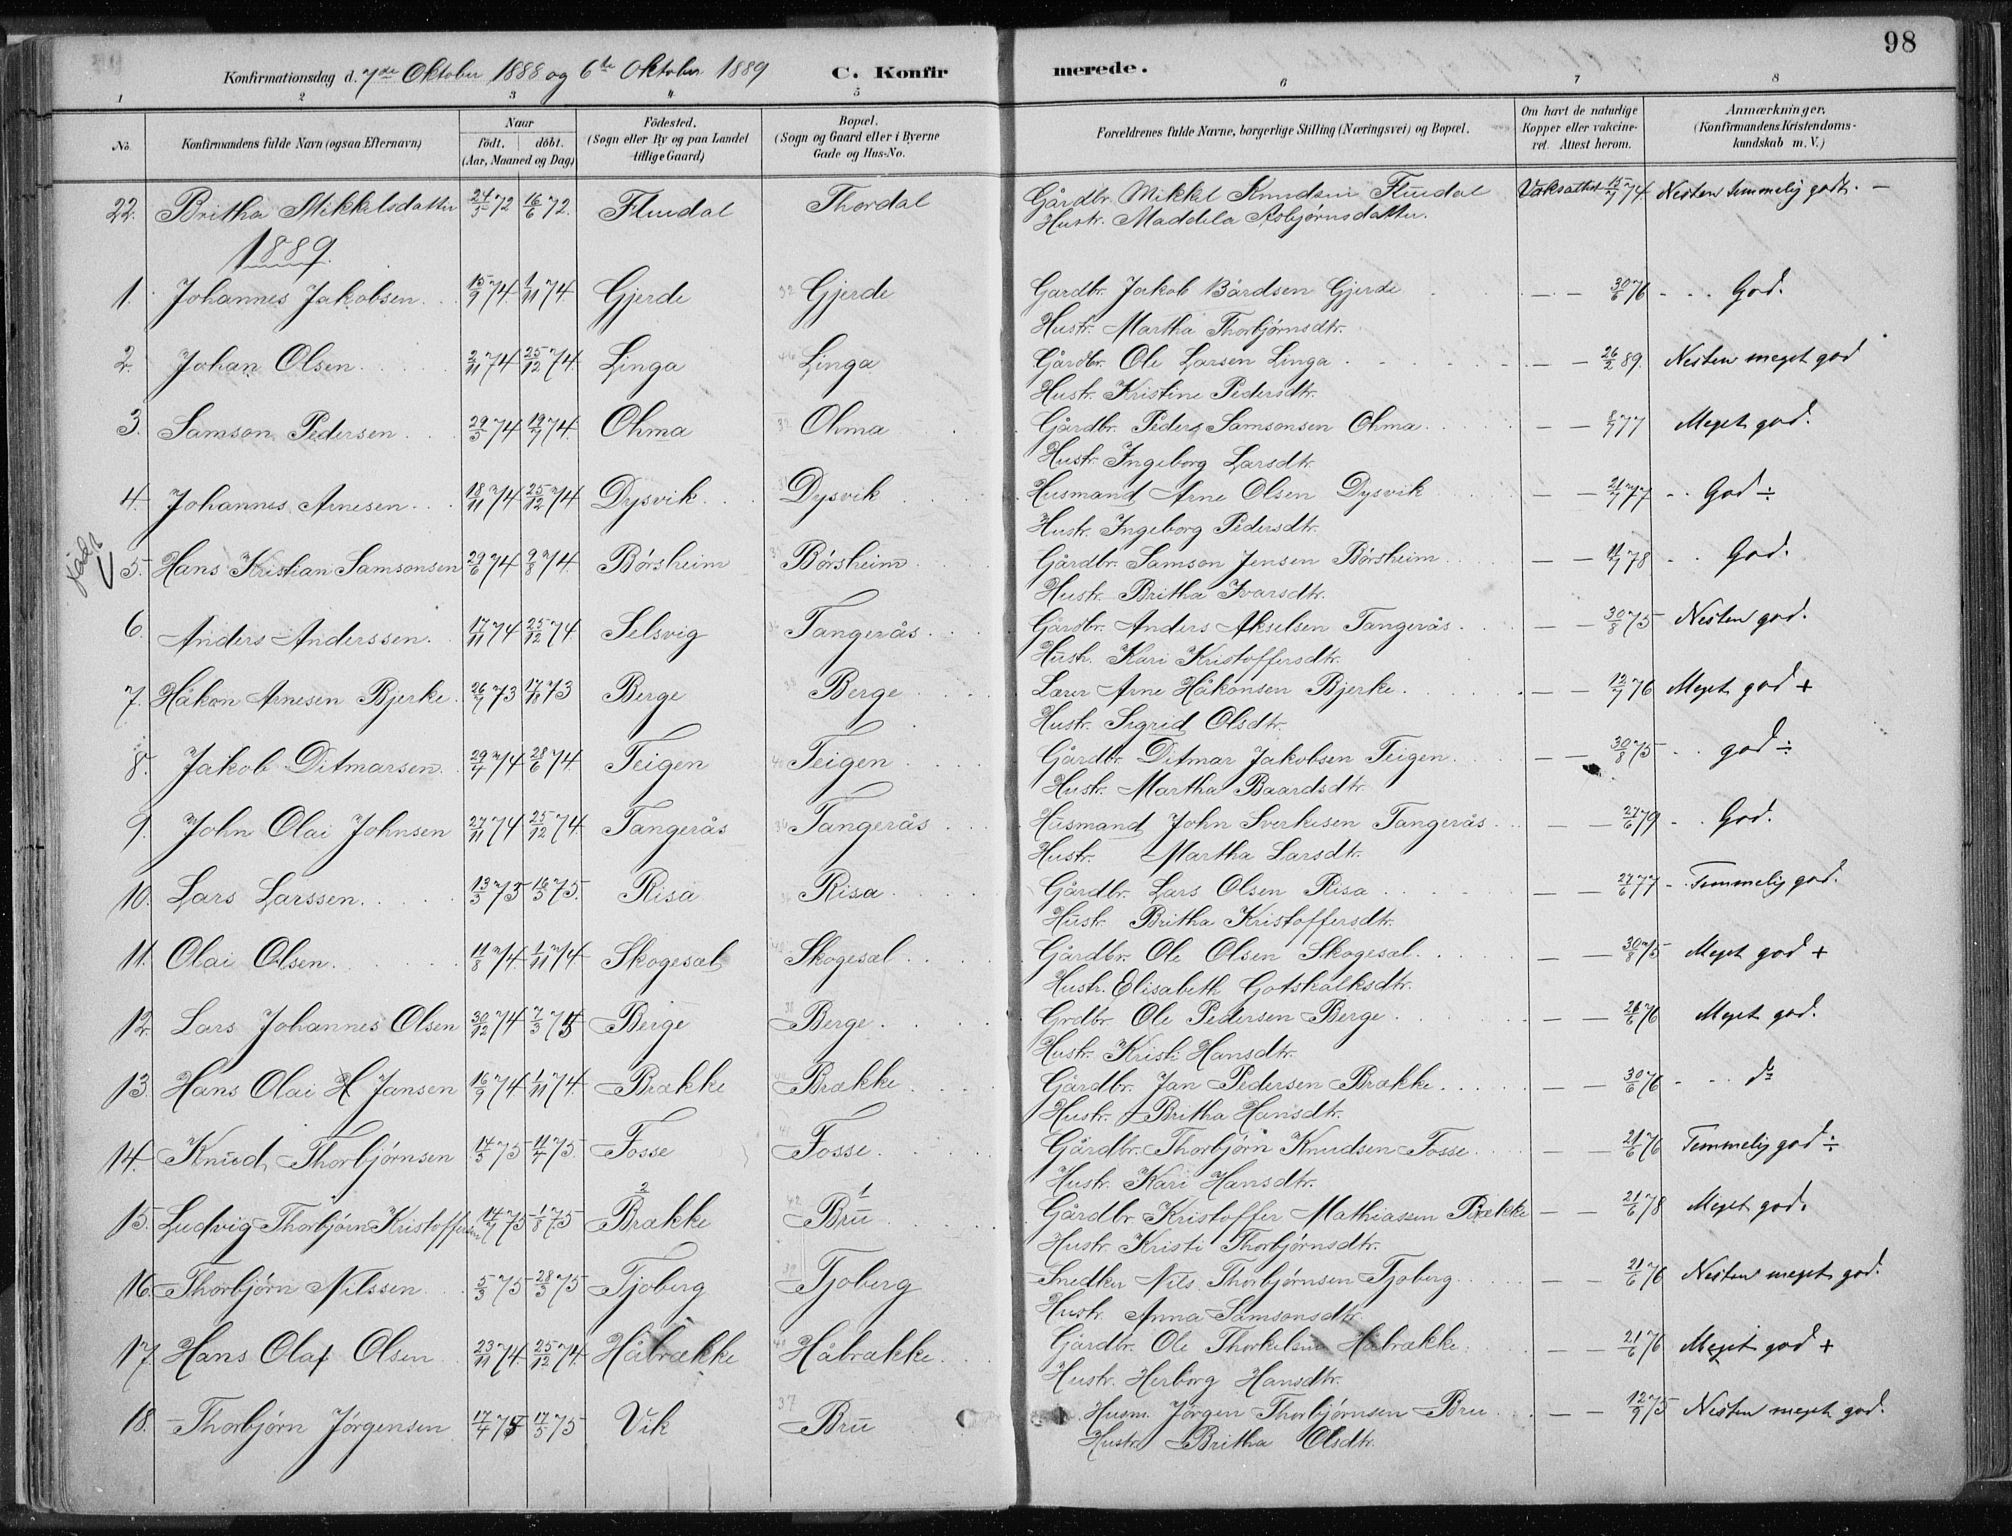 98
Konfirmationsdag d. 7de Oktober 1888 og 6te Oktober 1889 C. Konfirmerede.
1 2 3 4 5 6 7 8
No. Konfirmandens fulde Navn (ogsaa Efternavn) Naar født. døbt. (Aar, Maaned og Dag) Fødested. (Sogn eller By og paa Landet tillige Gaard) Bopæl. (Sogn og Gaard eller i Byerne Gade og Hus-No. Forældrenes fulde Navne, borgerlige Stilling (Næringsvei) og Bopæl. Om havt de naturlige Kopper eller vakcineret. Attest herom. Anmærkninger. (Konfirmandens Kristendomskundskab m. V.)
22. Britha Mikkelsdatter 24/5 72 16/6 72. Fludal Thordal Gårdbr. Mikkel Knudsen Fludal Vaksattest 15/7 74 Nesten temmelig god. -
Hustr. Maddela Asbjørnsdatter.
1889.
1. Johannes Jakobsen 15/9 74 1/11 74 Gjerde Gjerde Gardbr. Jakob Bårdsen Gjerde — — 30/6 76 God.
Hustr. Martha Thorbjørnsdtr.
2. Johan Olsen 2/11 74 25/12 74. Linga Linga Gårdbr. Ole Larsen Linga — — 26/2 89. Nesten meget god
Hustr. Kristine Pedersdtr.
3. Samson Pedersen 29/5 74 19/7 74. Ohma Ohma Gårdbr. Peder Samsonsen Ohma — — 8/7 77 Meget god.
Hustr. Ingeborg Larsdtr.
4. Johannes Arnesen 18/11 74 25/12 74 Dysvik Dysvik Husmand Arne Olsen Dysvik — — 21/7 77 God ÷
Hustr. Ingeborg Pedersdtr.
5. Hans Kristian Samsonsen 29/6 74 9/8 74. Børsheim Børsheim Gårdbr. Samson Jensen Børsheim — — 11/7 78 God.
Hustr. Britha Ivarsdtr.
6. Anders Anderssen 17/11 74 25/12 74. Selsvig Tangerås Gårdbr. Anders Akselsen Tangerås — — 30/8 75 Nesten god.
Hustr. Kari Kristoffersdtr.
7. Håkon Arnesen Bjerke 26/7 73 17/10 73 Berge Berge Lærer Arne Håkonsen Bjerke — — 12/7 76 Meget god +
Hustr. Sigrid Olsdtr.
8. Jakob Ditmarsen 29/4 74 28/6 74. Teigen Teigen Gårdbr. Ditmar Jakobsen Teigen — — 30/8 75 god ÷
Hustr. Martha Baardsdtr.
9. John Olai Johnsen 27/11 74 25/12 74. Tangerås Tangerås Husmand John Sverkesen Tangerås — — 27/6 79 God.
Hustr. Martha Larsdtr.
10. Lars Larssen 13/3 75 16/5 75. Risa Risa Gårdbr. Lars Olsen Risa — — 27/6 77 Temmelig god.
Hustr. Britha Kristoffersdtr.
11. Olai Olsen 11/8 74. 1/11 74 Skogesæl Skogesæl Gårdbr. Ole Olsen Skogesæl — — 30/8 75 Meget god +
Hustr. Elisabeth Gotskalksdtr.
12. Lars Johannes Olsen 30/12 74 7/3 75 Berge Berge Grdbr. Ole Pedersen Berge — — 21/6 76 Meget god.
Hustr. Kristi Hansdtr.
13. Hans Olai Jansen 16/9 74 1/11 74. Brække Brække Gårdbr. Jan Pedersen Brække — — 30/6 76 do
Hustr. Britha Hansdtr.
14. Knud Thorbjørnsen 14/3 75 11/4 75. Fosse Fosse Gårdbr. Thorbjørn Knudsen Fosse — — 21/6 76 Temmelig god ÷
Hustr. Kari Hansdtr.
15. Ludvig Thorbjørn Kristoffersen 14/7 75 1/8 75 Brække Bru Gårdbr. Kristoffer Mathiassen Brække — — 21/6 78 Meget god.
Hustr. Kristi Thorbjørnsdtr.
16. Thorbjørn Nilssen 5/3 75 28/3 75 Tjoberg Tjoberg Snedker Nils Thorbjørnsen Tjoberg — — 21/6 76 Nesten meget god.
Hustr. Anna Samsonsdtr
17. Hans Olaf Olsen 23/11 74 25/12 74. Håbrække Håbrække Gårdbr. Ole Thorkelsen Håbrække — — 21/6 76 Meget god +
Hustr. Herborg Hansdtr.
18. Thorbjørn Jørgensen 17/4 75 17/5 75 Vik Bru Husm. Jørgen Thorbjørnsen Bru — — 12/9 75 Nesten meget god.
Hustr. Britha Olsdtr.